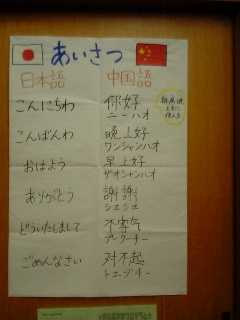 あいさつ
日本語 中国語
こんにちわ 你好
ニーハオ
こんばんわ 晚上好
ワンシャンハオ
おはよう 早上好
ザオシャンハオ
ありがとう 謝謝
シエシエ
どういたしまして 不客气
ブークーチー
ごめんなさい 对不起
トエブチー